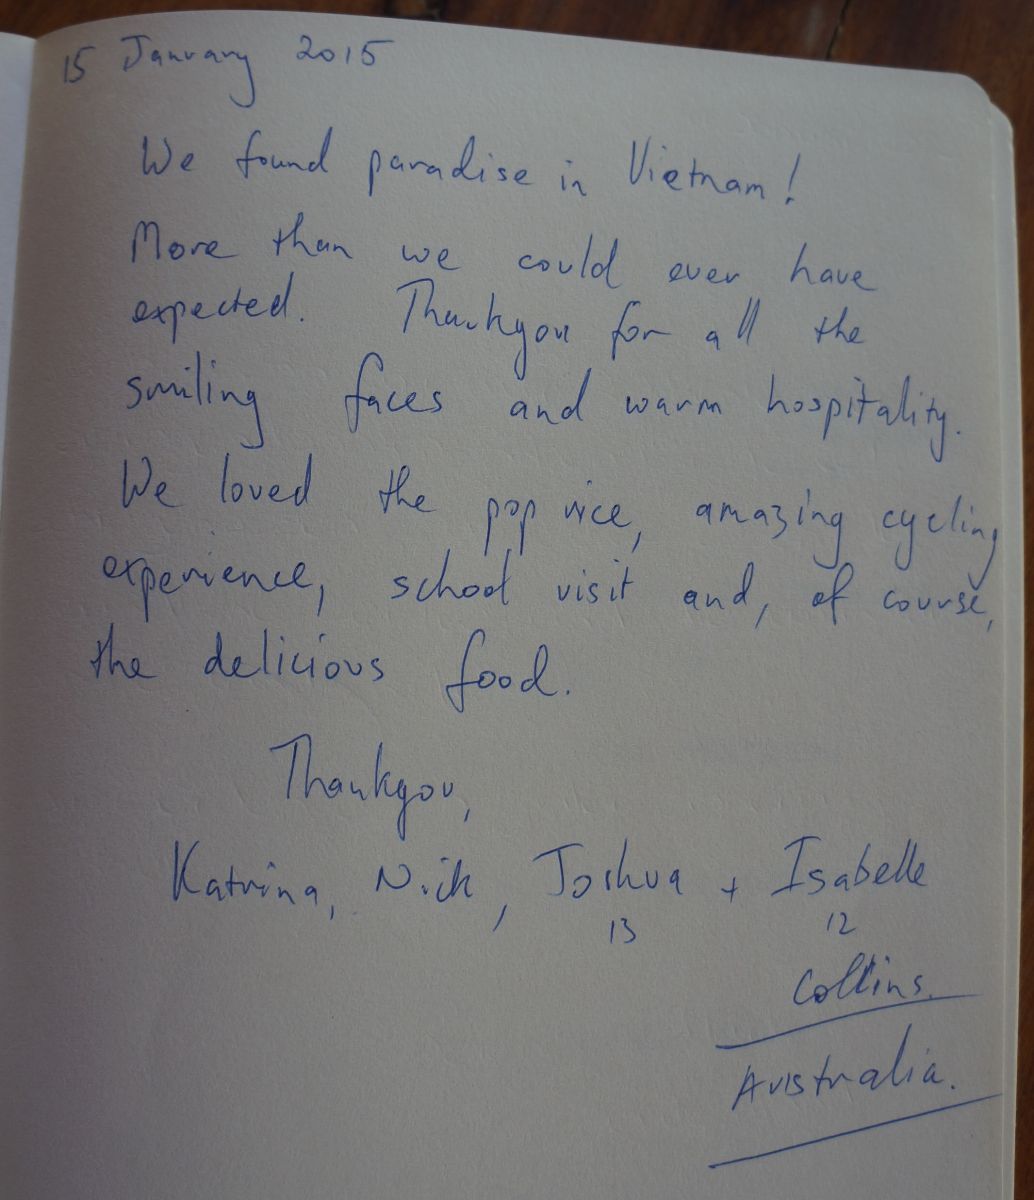 15 January 2015
We found paradise in Vietnam!
More than we could ever have
expected. Thankyou for all the
smiling faces and warm hospitality.
We loved the pop rice, amazing cycling
experience, school visit and, of course,
the delicious food.
Thankyou,
Katrina, Nick, Joshua + Isabelle
13 12
Collins.
Australia.